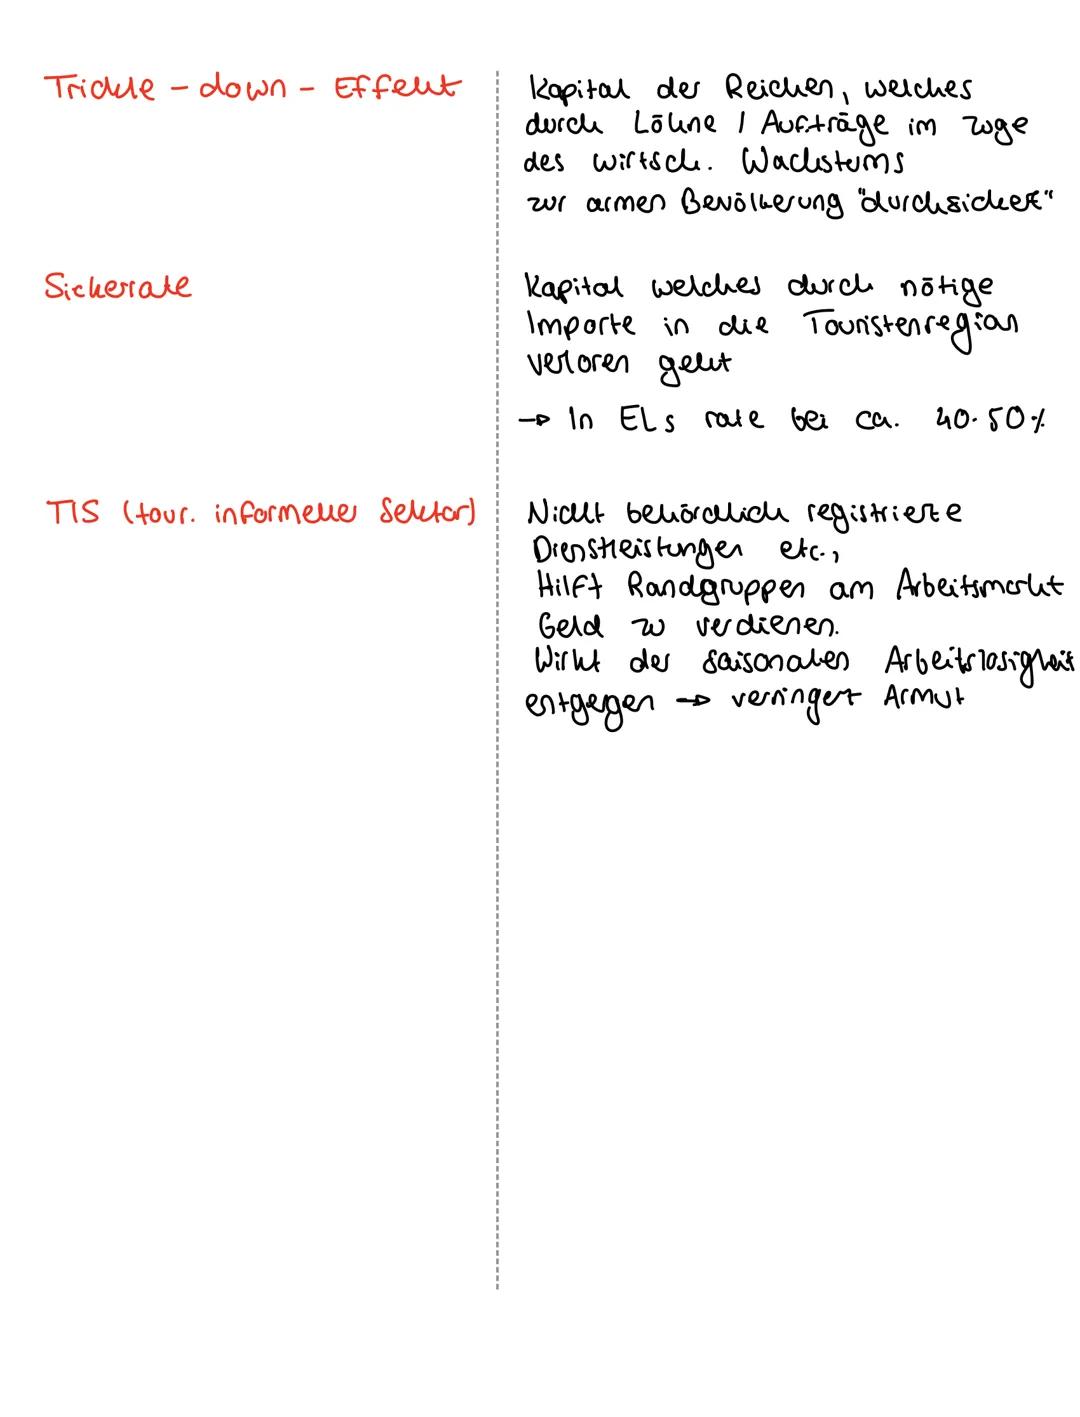 Trickle-down-Effekt
Kapital der Reichen, welches
durch Löhne / Aufträge im zuge
des wirtsch. Wachstums
zur armen Bevölkerung "durchsickert"
Sickerrate
Kapital welches durch nötige
Importe in die Touristenregion
verloren geht
→ In ELs rate bei ca. 40-50%
TIS (tour. informeller Sektor)
Nicht behördlich registrierte
Dienstleistungen etc.,
Hilft Randgruppen am Arbeitsmarkt
Geld zu verdienen.
Wirkt der saisonalen Arbeitslosigkeit
entgegen → verringert Armut